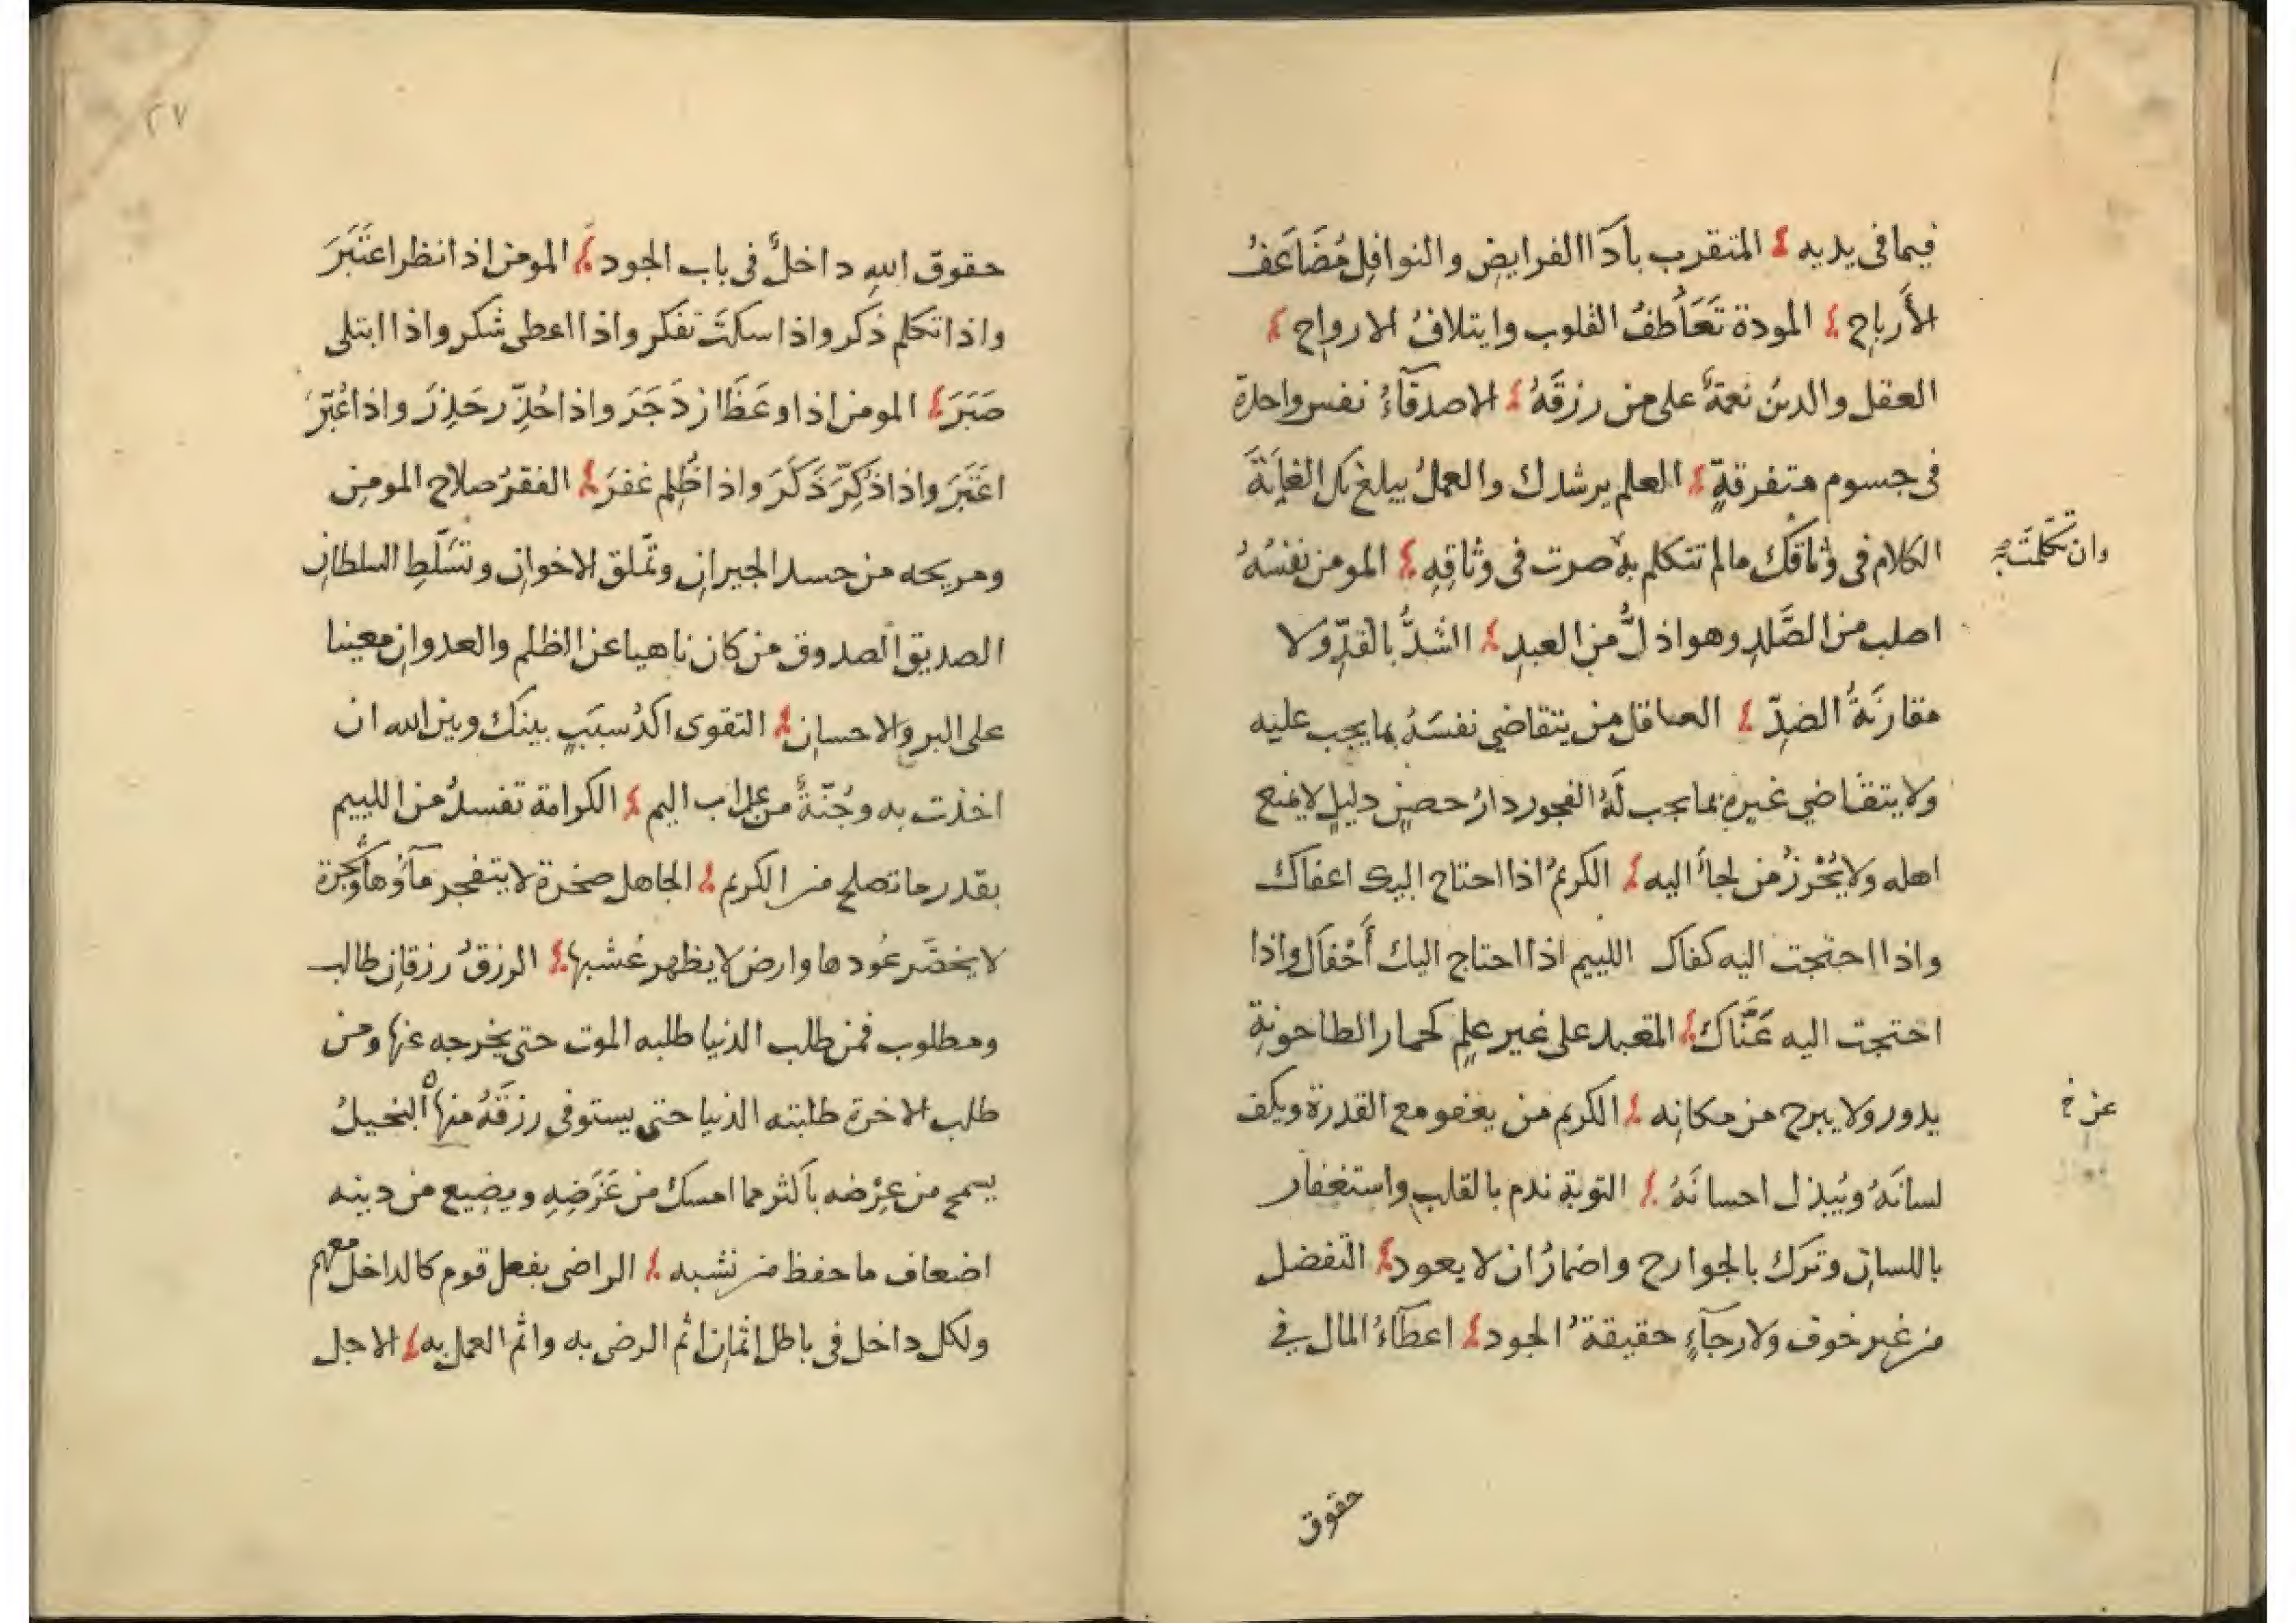 فيما فى يديه المتقرب بادآا الفرايض والنوافل مُضَاعَفُ
الأَرباح المودة تَعَاطفُ القلوب وايتلافُ الارواح
العقل والدينُ نعمةٌ على من رزقَهُ الاصدقآءُ نفس واحدة
فى جسوم متفرقةٍ العلم يرشدك والعملُ يبلغ بك الغايَةَ
الكلام فى وثاقك مالم تتكلم به صرت فى وثاقِهِ المومن نفسُهُ
وان تكلمت به
اصلب من الصَّلدِ وهو اذلُّ من العبدِ الشدُّ بالقدِّ ولا
مقارنَةُ الضدِّ العاقل من يتقاضي نفسَهُ بما يجب عليه
ولا يتقاضي غيره بما يجب لَهُ الفجور دارُ حصنٍ دليلٍ لا يمنع
اهله ولا يُحْرزُ من لجأ اليه الكريمُ اذا احتاج اليك اعفاك
واذا احتجت اليه كفاك اللييم اذا احتاج اليك أَحْفاك واذا
احتجت اليه عَنَّاك المتعبد على غير علمٍ كحمار الطاحونةِ
يدور ولا يبرح من مكانه الكريم من يعفو مع القدرة ويكف
عن خ
لسانَهُ ويُبذل احسانَهُ التوبة ندم بالقلب واستغفار
باللسان وترك بالجوارح واضمارُ ان لا يعود التفضل
من غير خوف ولا رجآءٍ حقيقةُ الجود اعطآءُ المال في
حقوق
٢٧
حقوق اللهِ داخلٌ فى باب الجود المومن اذا نظر اعتَبَرَ
واذا تكلم ذكر واذا سكتَ تفكر واذا اعطى شكر واذا ابتلى
صَبَرَ المومن اذا وعَظَ ازدَجَرَ واذا حُذِّر حَذِرَ واذا عُبِّرَ
اعتَبَرَ واذا ذُكِّرَ ذَكَرَ واذا ظُلِم غفرَ الفقرُ صلاح المومن
ومريحه من حسد الجيران وتملق الاخوان وتسَلّطِ السلطان
الصديق الصدوق من كان ناهيا عن الظلم والعدوان معينا
على البر والاحسان التقوى اكدُ سبَبٍ بينك وبين الله ان
اخذت به وجُنّةٌ من عذاب اليم الكرامة تفسدُ من اللييم
بقدر ما تصلح من الكريم الجاهل صخرة لا يتفجر مآؤها وشجرة
لا يخضَر عُودها وارض لا يظهر عُشبها الرزقُ رزقان طالب
ومطلوب فمن طلب الدنيا طلبه الموت حتى يخرجه عنها ومن
طلب الاخرة طلبته الدنيا حتى يستوفى رزقَهُ منها البخيلُ
يسمح من عِرْضه باكثر مما امسك من عَرَضِهِ ويضيع من دينه
اضعاف ما حفظ من نشبه الراضى بفعل قوم كالداخل معهم
ولكل داخل فى باطل اثمان اثم الرضى به واثم العمل به الاجل